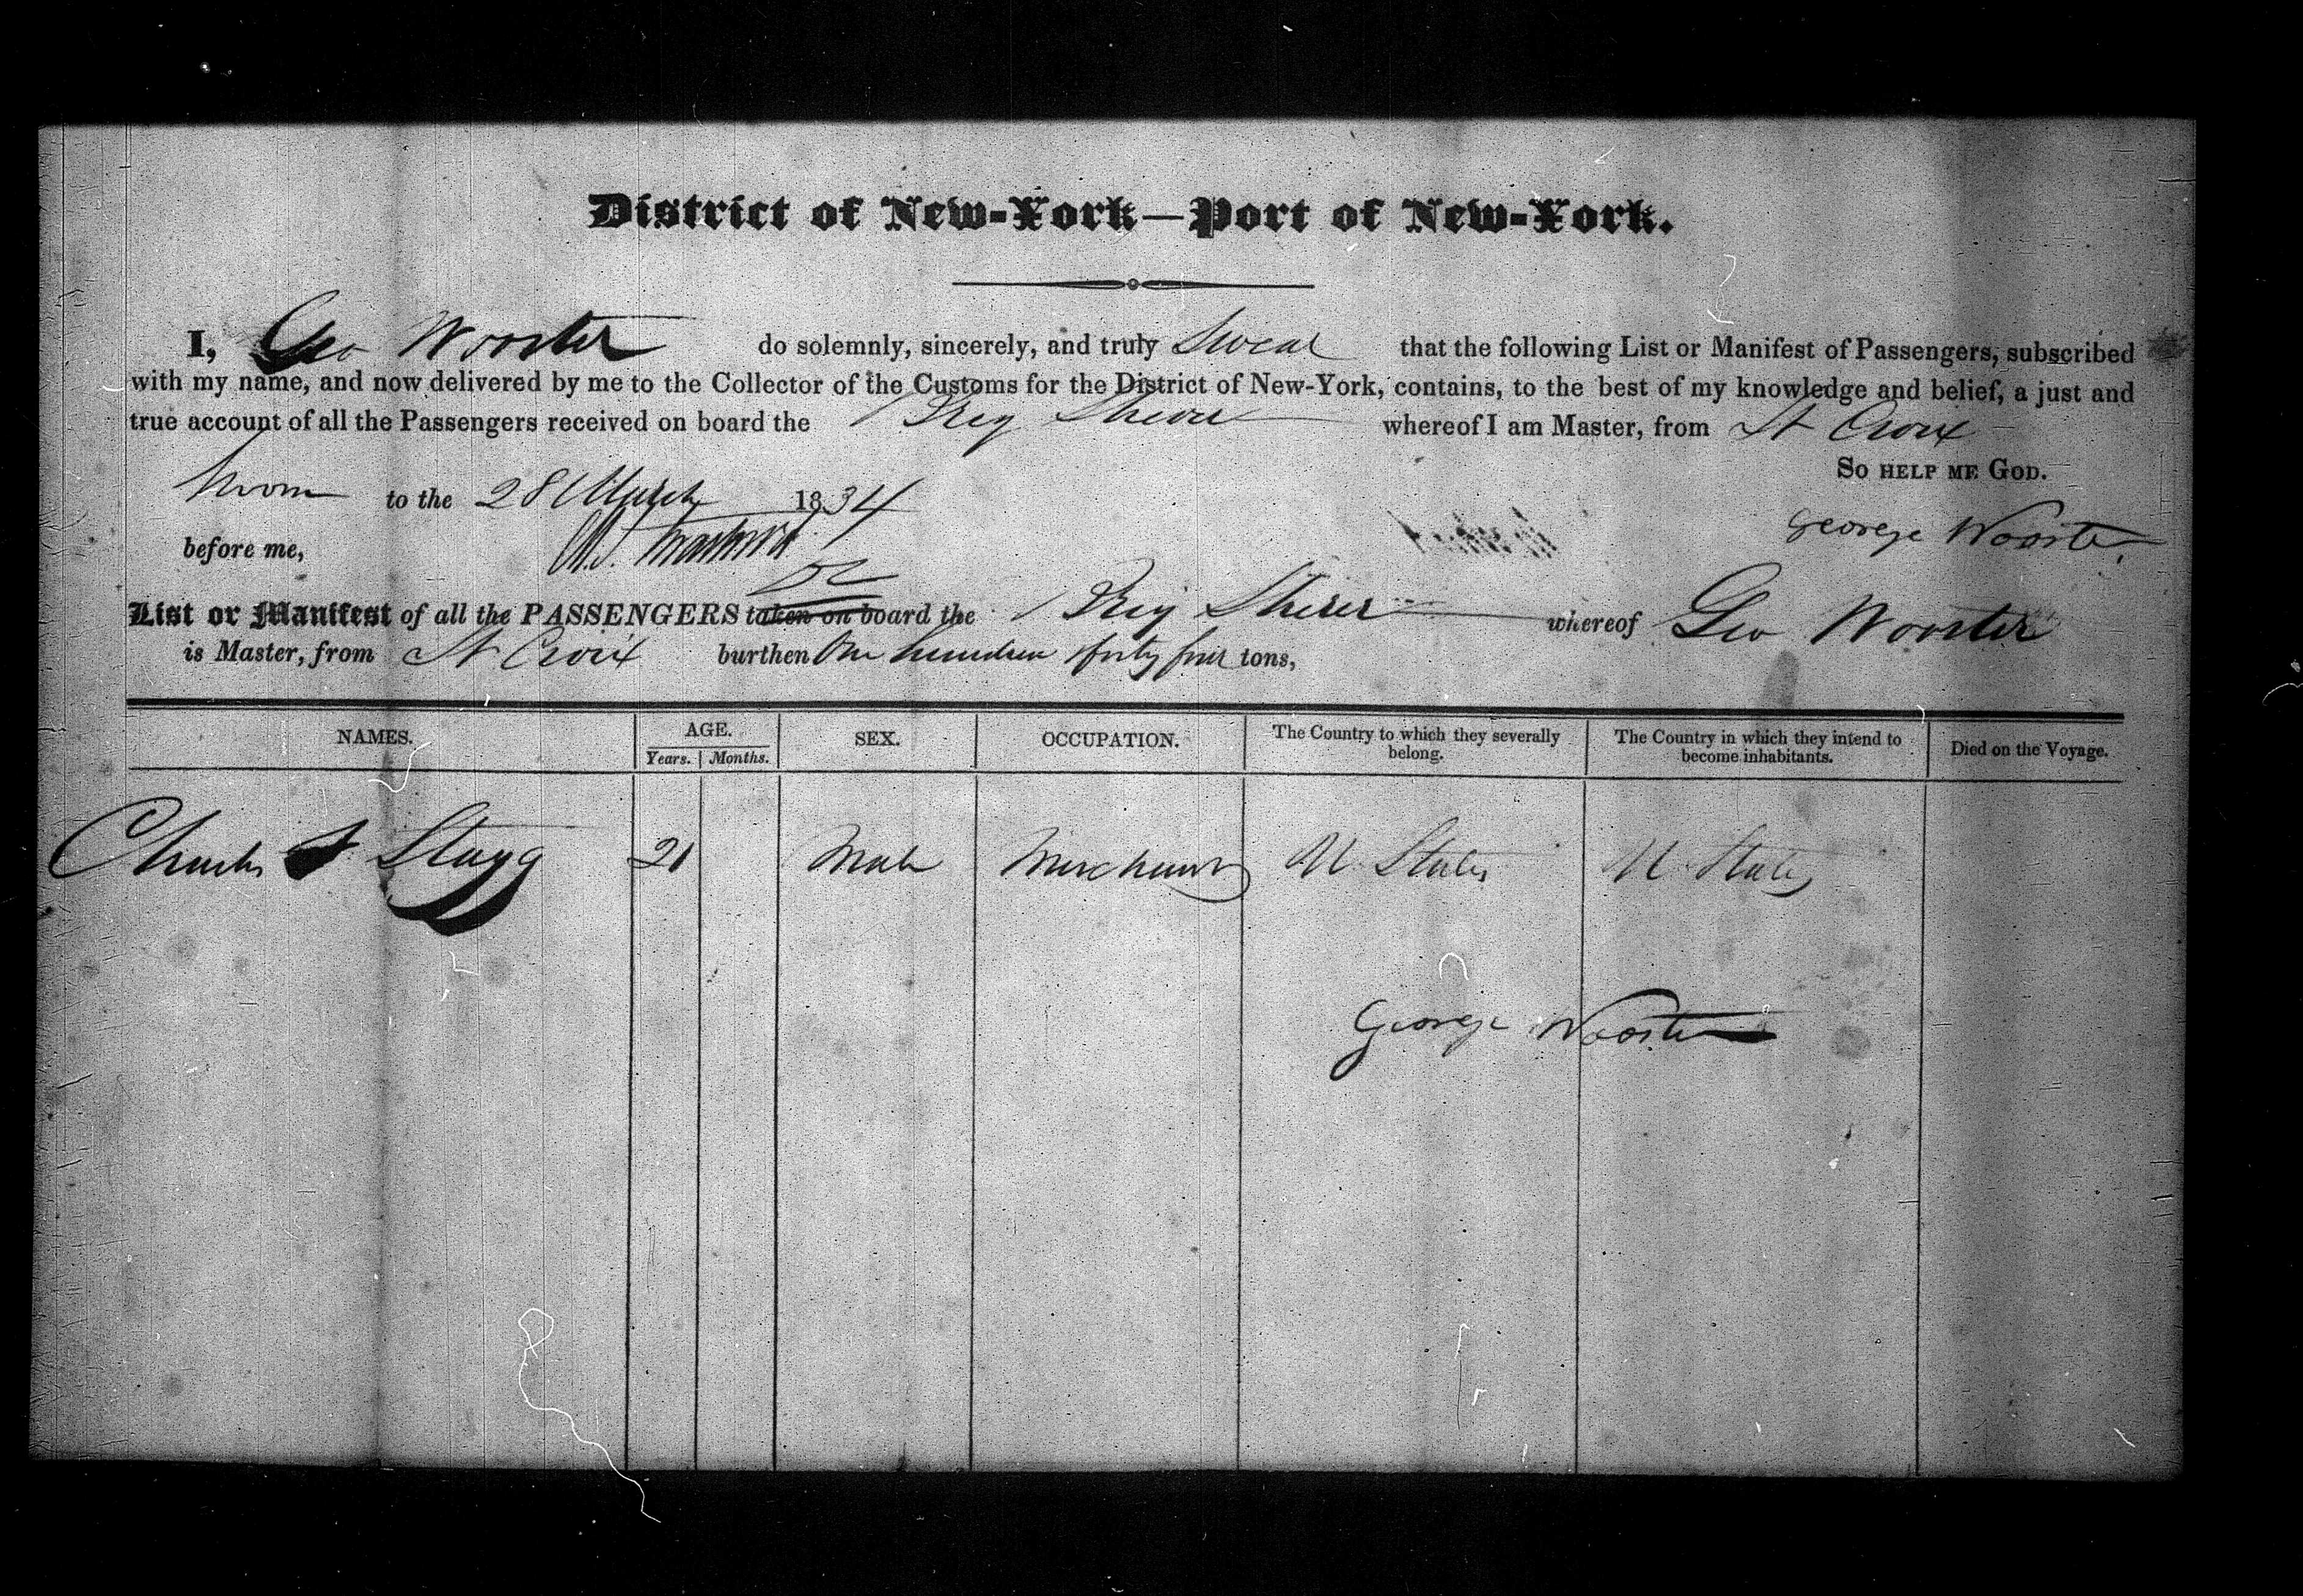 District of New-York—Port of New-York.
I, Geo Wooster do solemnly, sincerely, and truly Swear that the following List or Manifest of Passengers, subscribed
with my name, and now delivered by me to the Collector of the Customs for the District of New-York, contains, to the best of my knowledge and belief, a just and
true account of all the Passengers received on board the Brig whereof I am Master, from St Croix
So help me God.
Sworn to the 28 March 1834
George Wooster
before me,
List or Manifest of all the PASSENGERS taken on board the Brig whereof Geo Wooster
is Master, from St Croix burthen One hundred forty four tons,
NAMES. AGE. SEX. OCCUPATION. The Country to which they severally belong. The Country in which they intend to become inhabitants. Died on the Voyage.
Years. Months.
Charles Stagg 21 Male Merchant U States U States
George Wooster